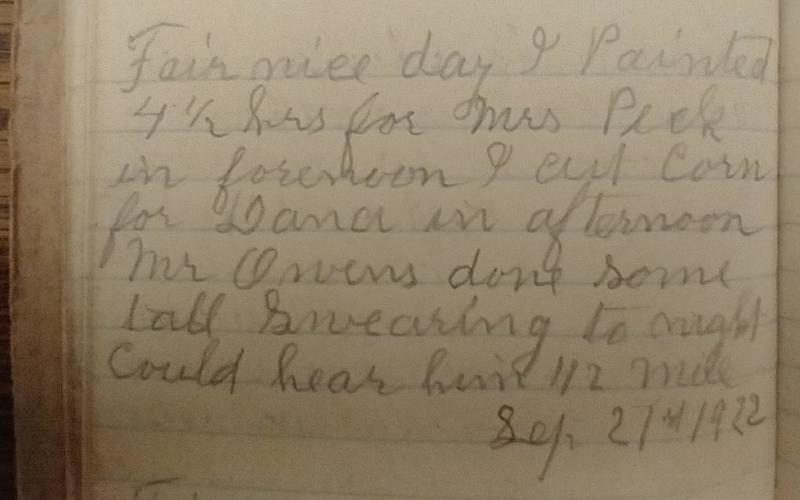 Fair nice day I Painted
4 1/2 hrs for Mrs Peck
in forenoon I cut Corn
for Dana in afternoon
Mr Owens done some
tall Swearing to night
Could hear him 1/2 mile
Sep. 27th/1922